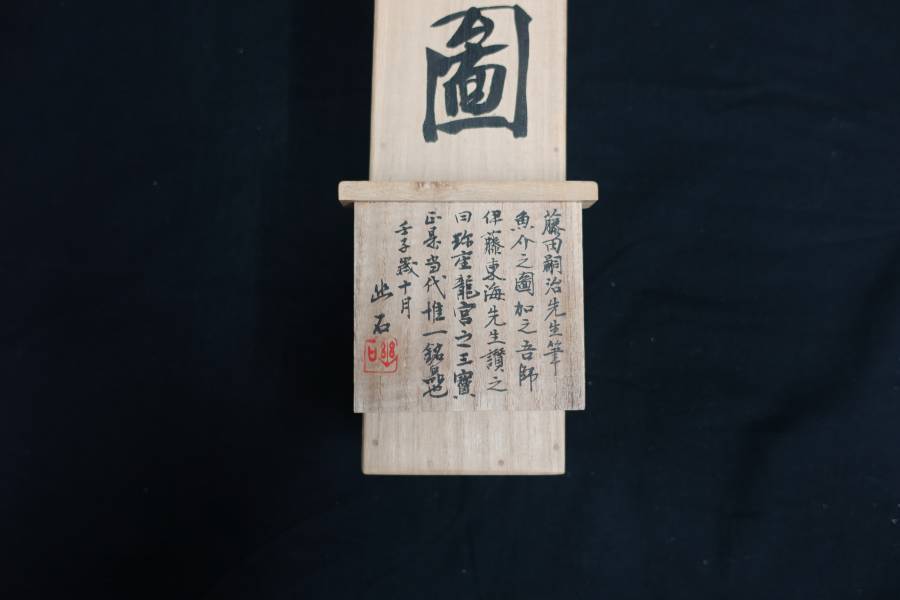 圖
藤田嗣治先生筆
魚介之圖加之吾師
伊藤東海先生讃之
曰珎座龍宮之三寶
正是当代惟一銘品也
壬子歳十月
幽石